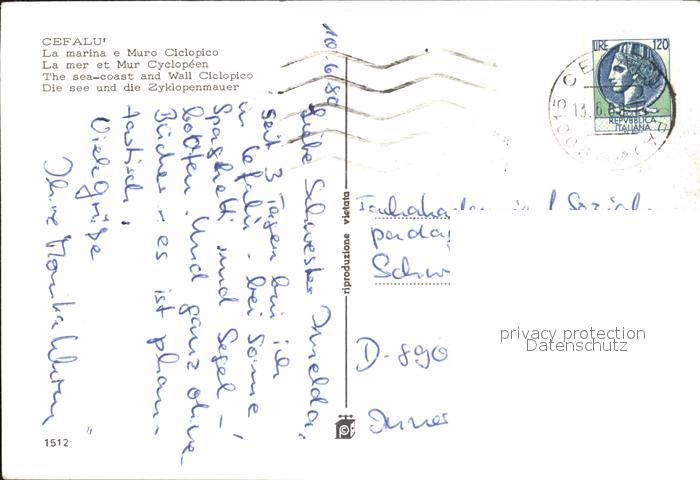 CEFALU'
La marina e Muro Ciclopico
La mer et Mur Cyclopéen
The sea-coast and Wall Ciclopico
Die see und die Zyklopenmauer
10.6.80
Liebe Schwester Imelda,
seit 3 Tagen bin ich
in Cefalù - bei Sonne,
Spaghetti und Segel-
booten. Und ganz ohne
Bücher - es ist phan-
tastisch!
Viele Grüße
Ihre Monika
1512
riproduzione vietata
LIRE 120
REPVBBLICA
ITALIANA
90015 CE
13.6.80
Sozial
pädag
Schw
D-890
privacy protection
Datenschutz